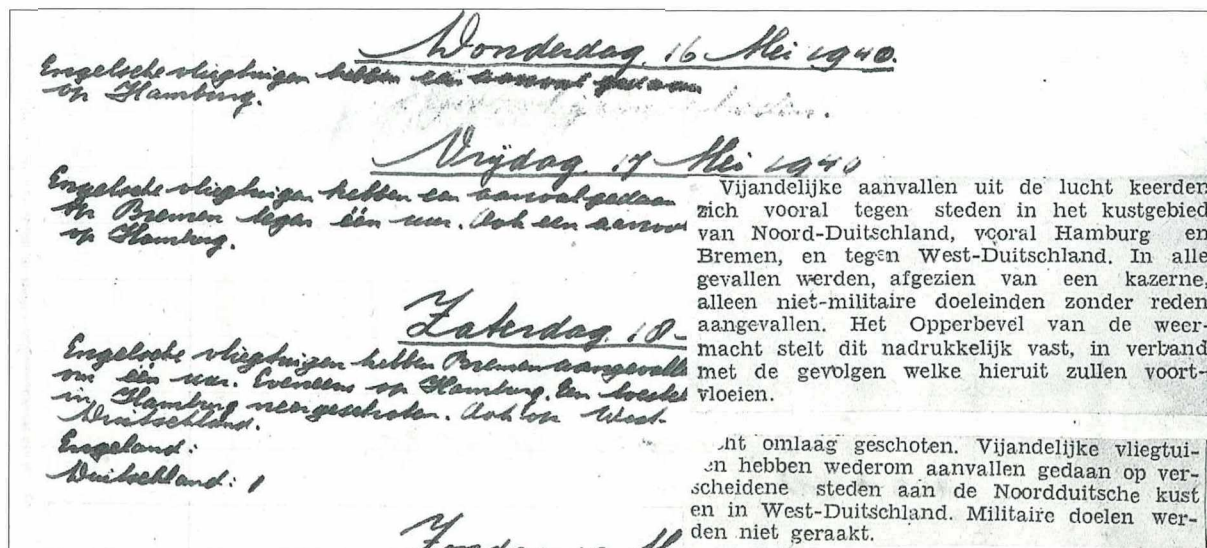 Donderdag, 16 Mei 1940.
Engelsche vliegtuigen hebben een aanval gedaan
op Hamburg.
Vrijdag, 17 Mei 1940
Engelsche vliegtuigen hebben een aanval gedaan
op Bremen tegen één uur. Ook een aanval
op Hamburg.
Zaterdag, 18-
Engelsche vliegtuigen hebben Bremen aangevalle
om één uur. Eveneens op Hamburg. Een toestel
in Hamburg neergeschoten. Ook op West-
Duitschland.
Engeland:
Duitschland: 1
Vijandelijke aanvallen uit de lucht keerden
zich vooral tegen steden in het kustgebied
van Noord-Duitschland, vooral Hamburg en
Bremen, en tegen West-Duitschland. In alle
gevallen werden, afgezien van een kazerne,
alleen niet-militaire doeleinden zonder reden
aangevallen. Het Opperbevel van de weer-
macht stelt dit nadrukkelijk vast, in verband
met de gevolgen welke hieruit zullen voort-
vloeien.
ht omlaag geschoten. Vijandelijke vliegtui-
en hebben wederom aanvallen gedaan op ver-
scheidene steden aan de Noordduitsche kust
en in West-Duitschland. Militaire doelen wer-
den niet geraakt.